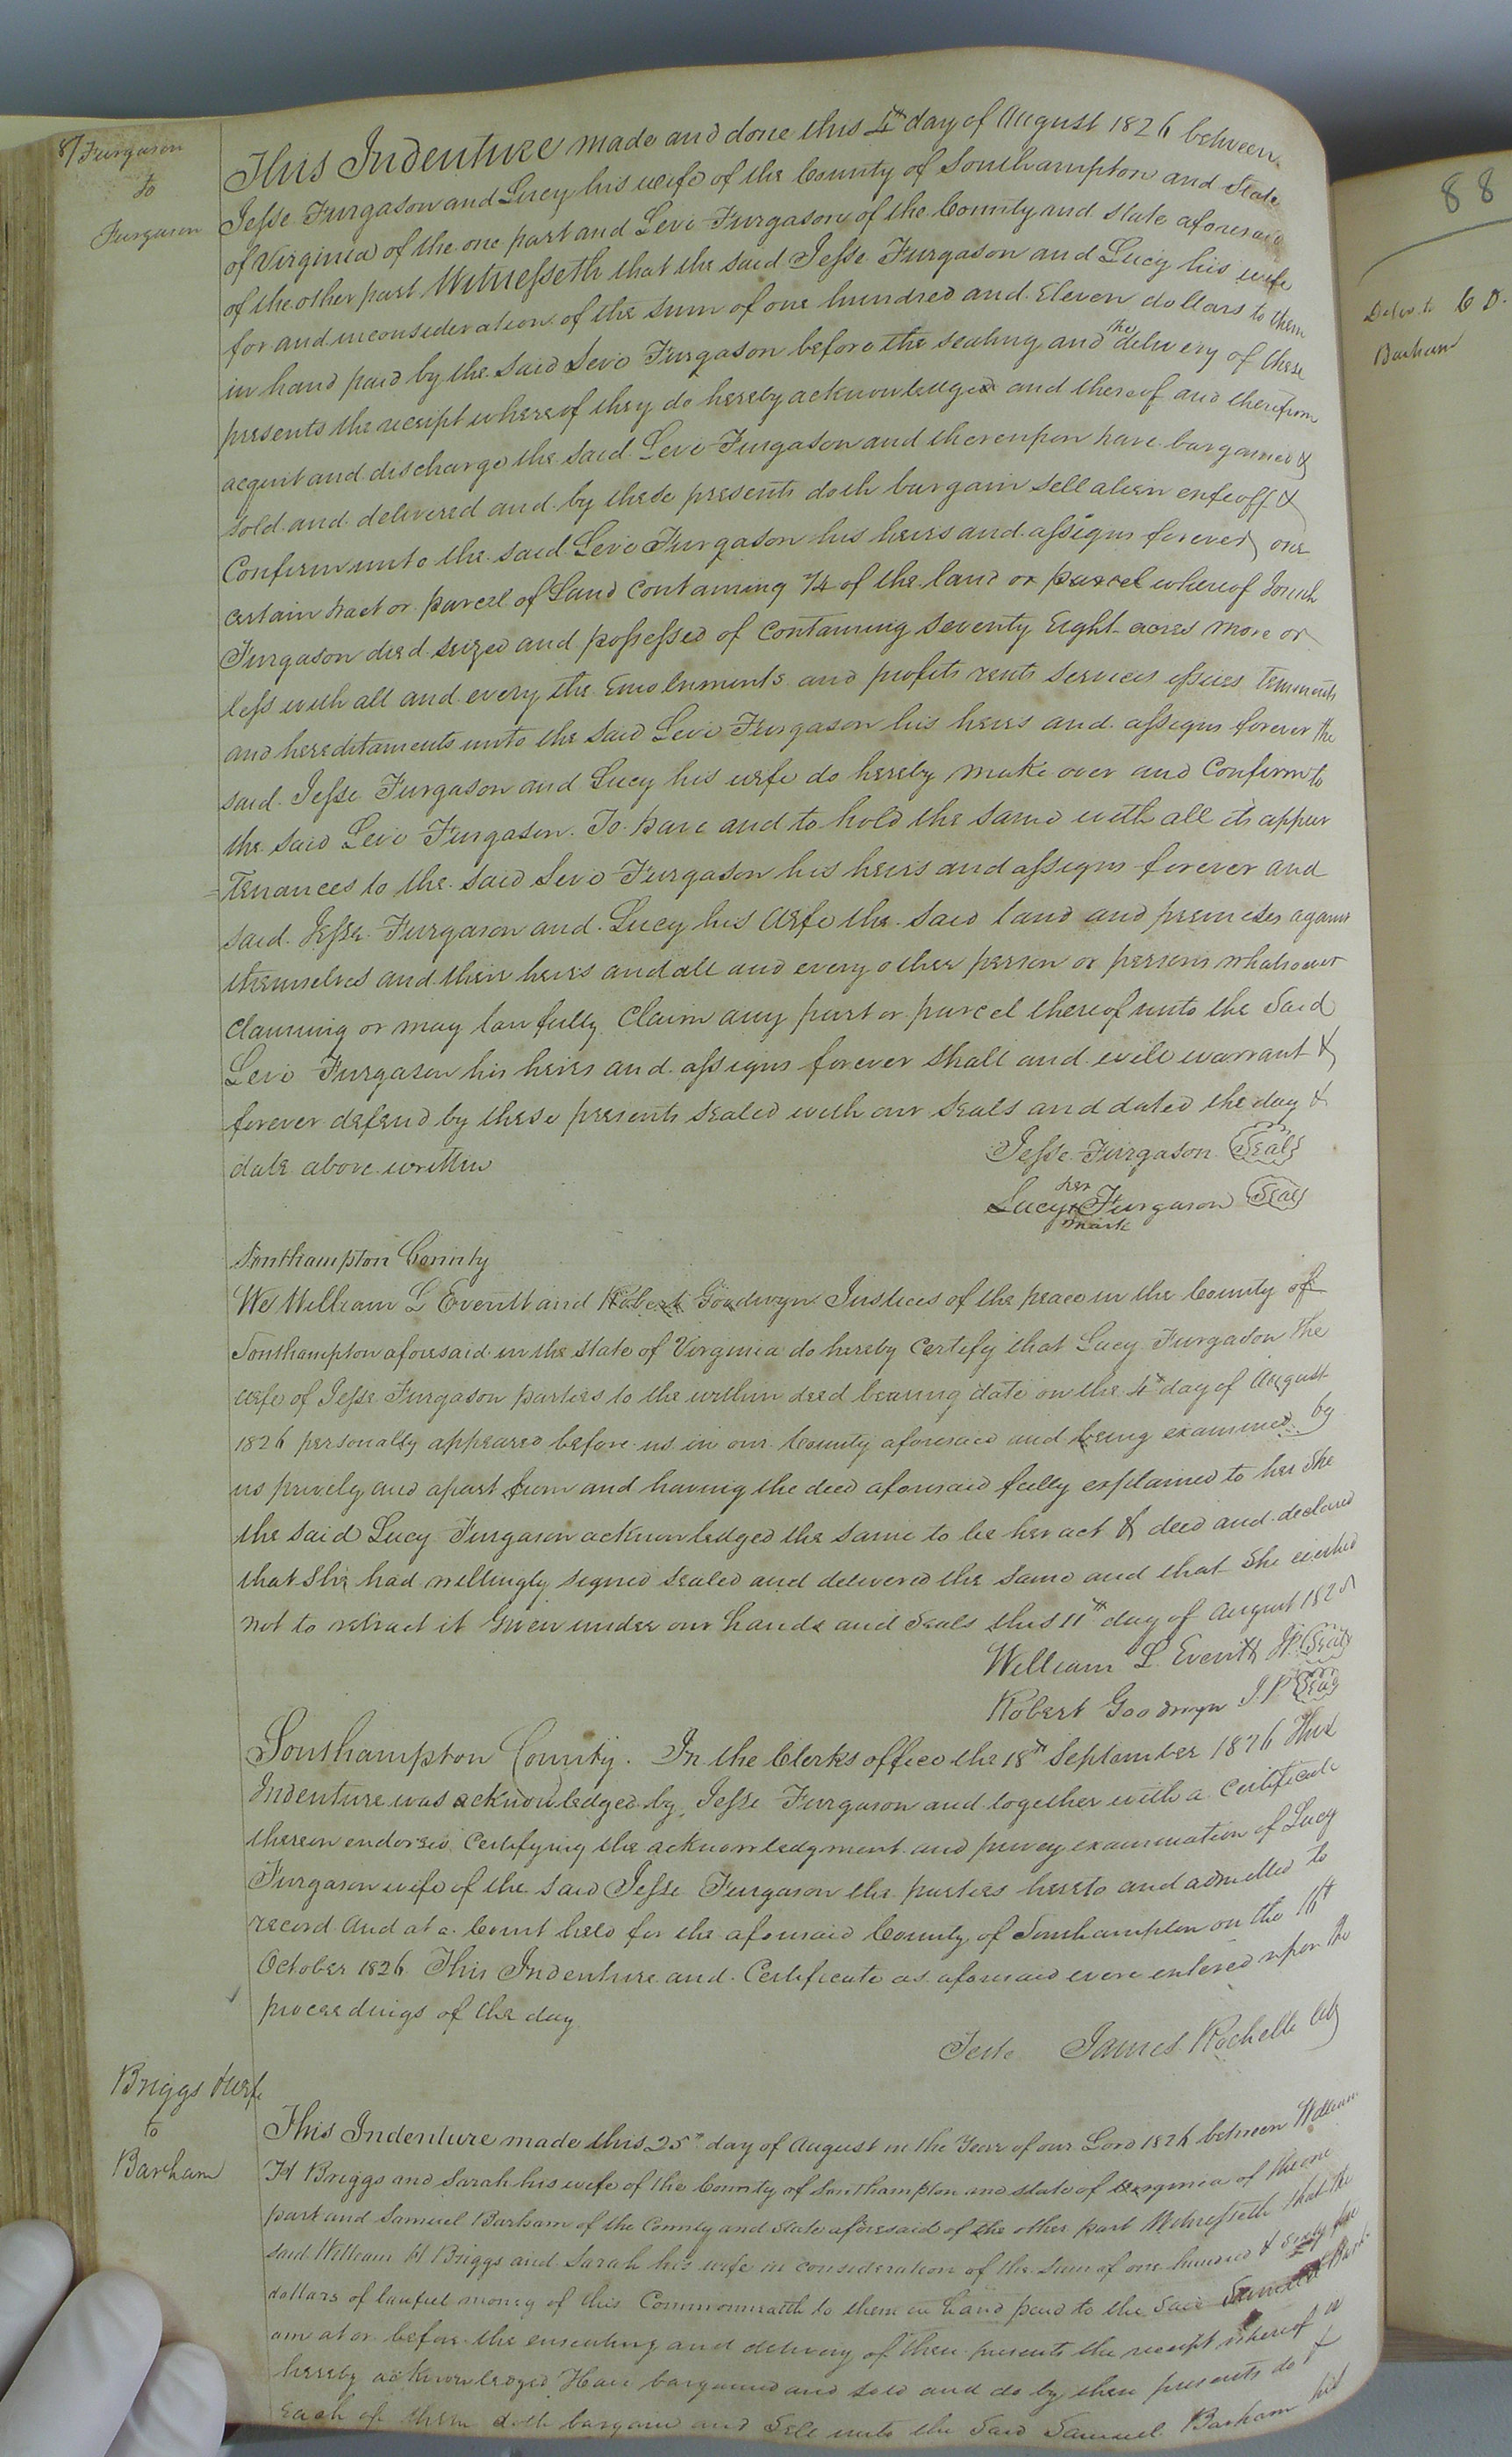 87 Furgason
to
Furgason
This Indenture made and done this 4th day of August 1826 between
Jesse Furgason and Lucy his wife of the County of Southampton and State
of Virginia of the one part and Levi Furgason of the County and state aforesaid
of the other part Witnesseth that the said Jesse Furgason and Lucy his wife
for and inconsideration of the sum of one hundred and Eleven dollars to them
in hand paid by the said Levi Furgason before the sealing and the delivery of these
presents the receipt whereof they do hereby acknowledged and thereof and therefrom
acquit and discharge the said Levi Furgason and thereupon have bargained &
sold and delivered and by these presents doth bargain sell alien enfeoff &
Confirm unto the said Levi Furgason his heirs and assigns forever one
certain tract or parcel of Land containing 1/4 of the land or parcel whereof
Furgason died seized and possessed of containing seventy Eight acres more or
less with all and every the Emoluments and profits rents services
and hereditaments unto the said Levi Furgason his heirs and assigns forever the
said Jesse Furgason and Lucy his wife do hereby make over and Confirm to
the said Levi Furgason. To have and to hold the same with all its appur
=tenances to the said Levi Furgason his heirs and assigns forever and
said Jesse Furgason and Lucy his wife the said land and premises against
themselves and their heirs and all and every other person or persons whatsoever
claiming or may lawfully Claim any part or parcel thereof unto the Said
Levi Furgason his heirs and assigns forever shall and will warrant &
forever defend by these presents sealed with our seals and dated the day &
date above written
Jesse Furgason Seal
her
Lucy x Furgason Seal
mark
Southampton County
We William L Everitt and Robert Goodwyn Justices of the peace in the County of
Southampton aforesaid in the state of Virginia do hereby Certify that Lucy Furgason the
wife of Jesse Furgason parties to the within deed bearing date on the 4th day of August
1826 personally appeared before us in our County aforesaid and being examined by
us privily and apart from and having the deed aforesaid fully explained to her she
the said Lucy Furgason acknowledged the same to be her act & deed and declared
that she had willingly signed sealed and delivered the same and that she wished
not to retract it Given under our hands and Seals this 11th day of August
William L. Everitt JP Seal
Robert Goodwyn J.P Seal
Southampton County. In the Clerks office the 18th September 1826 This
Indenture was acknowledged by Jesse Furgason and together with a Certificate
thereon endorsed Certifying the acknowledgment and privy examination of Lucy
Furgason wife of the said Jesse Furgason the parties hereto and admitted to
record And at a Court held for the aforesaid County of Southampton on the
October 1826 This Indenture and Certificate as aforesaid were entered upon the
proceedings of the day
Teste James Rochelle Clk
Briggs & wife
to
Barham
This Indenture made this 25th day of August in the Year of our Lord 1826 between William
H Briggs and Sarah his wife of the County of Southampton and state of Virginia of the one
part and Samuel Barham of the County and State aforesaid of the other part Witnesseth that the
said William H Briggs and Sarah his wife in consideration of the Sum of one hundred & sixty five
dollars of lawful money of this Commonwealth to them in hand paid to the Said Samuel Barh
am at or before the ensealing and delivery of these presents the receipt whereof is
hereby acknowledged Have bargained and sold and do by these presents do &
Each of them doth bargain and Sell unto the Said Samuel Barham his
88
Barham